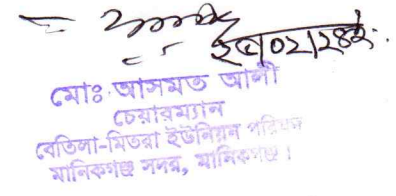 মোঃ আসমত আলী
চেয়ারম্যান
বেতিলা-মিতরা ইউনিয়ন পরিষদ
মানিকগঞ্জ সদর, মানিকগঞ্জ।